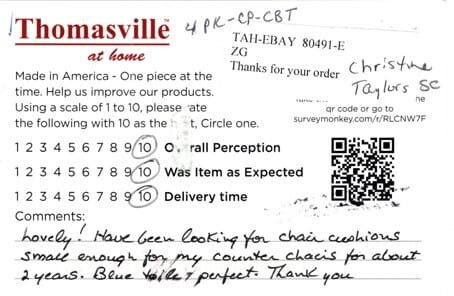 Thomasville™
at home
4 PK-CP-CBT
TAH-EBAY 80491-E
ZG
Thanks for your order
Christine
Taylors SC
Made in America - One piece at the
time. Help us improve our products.
Using a scale of 1 to 10, please rate
the following with 10 as the best, Circle one.
qr code or go to
surveymonkey.com/r/RLCNW7F
1 2 3 4 5 6 7 8 9 10 Overall Perception
1 2 3 4 5 6 7 8 9 10 Was Item as Expected
1 2 3 4 5 6 7 8 9 10 Delivery time
Comments:
Lovely! Have been looking for chair cushions
small enough for my counter chairs for about
2 years. Blue toile perfect. Thank you